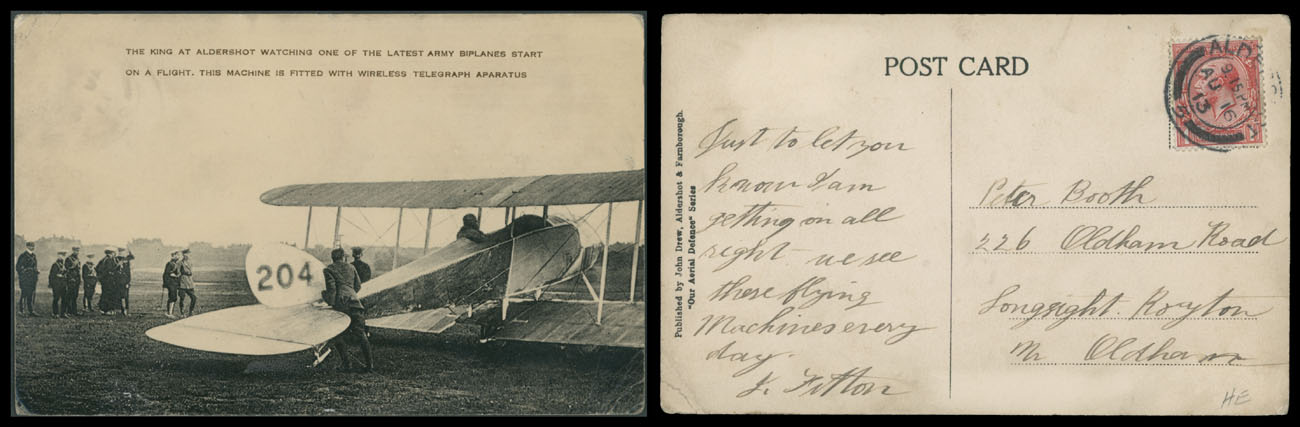 THE KING AT ALDERSHOT WATCHING ONE OF THE LATEST ARMY BIPLANES START
ON A FLIGHT. THIS MACHINE IS FITTED WITH WIRELESS TELEGRAPH APARATUS
204
POST CARD
ALD
9.15 PM
AU 16
13
Published by John Drew, Aldershot & Farnborough.
"Our Aerial Defence" Series
Just to let you
know I am
getting on all
right. we see
these flying
Machines every
day.
J. Fitton
Peter Booth
226 Oldham Road
Longsight. Royton
Nr Oldham
HE